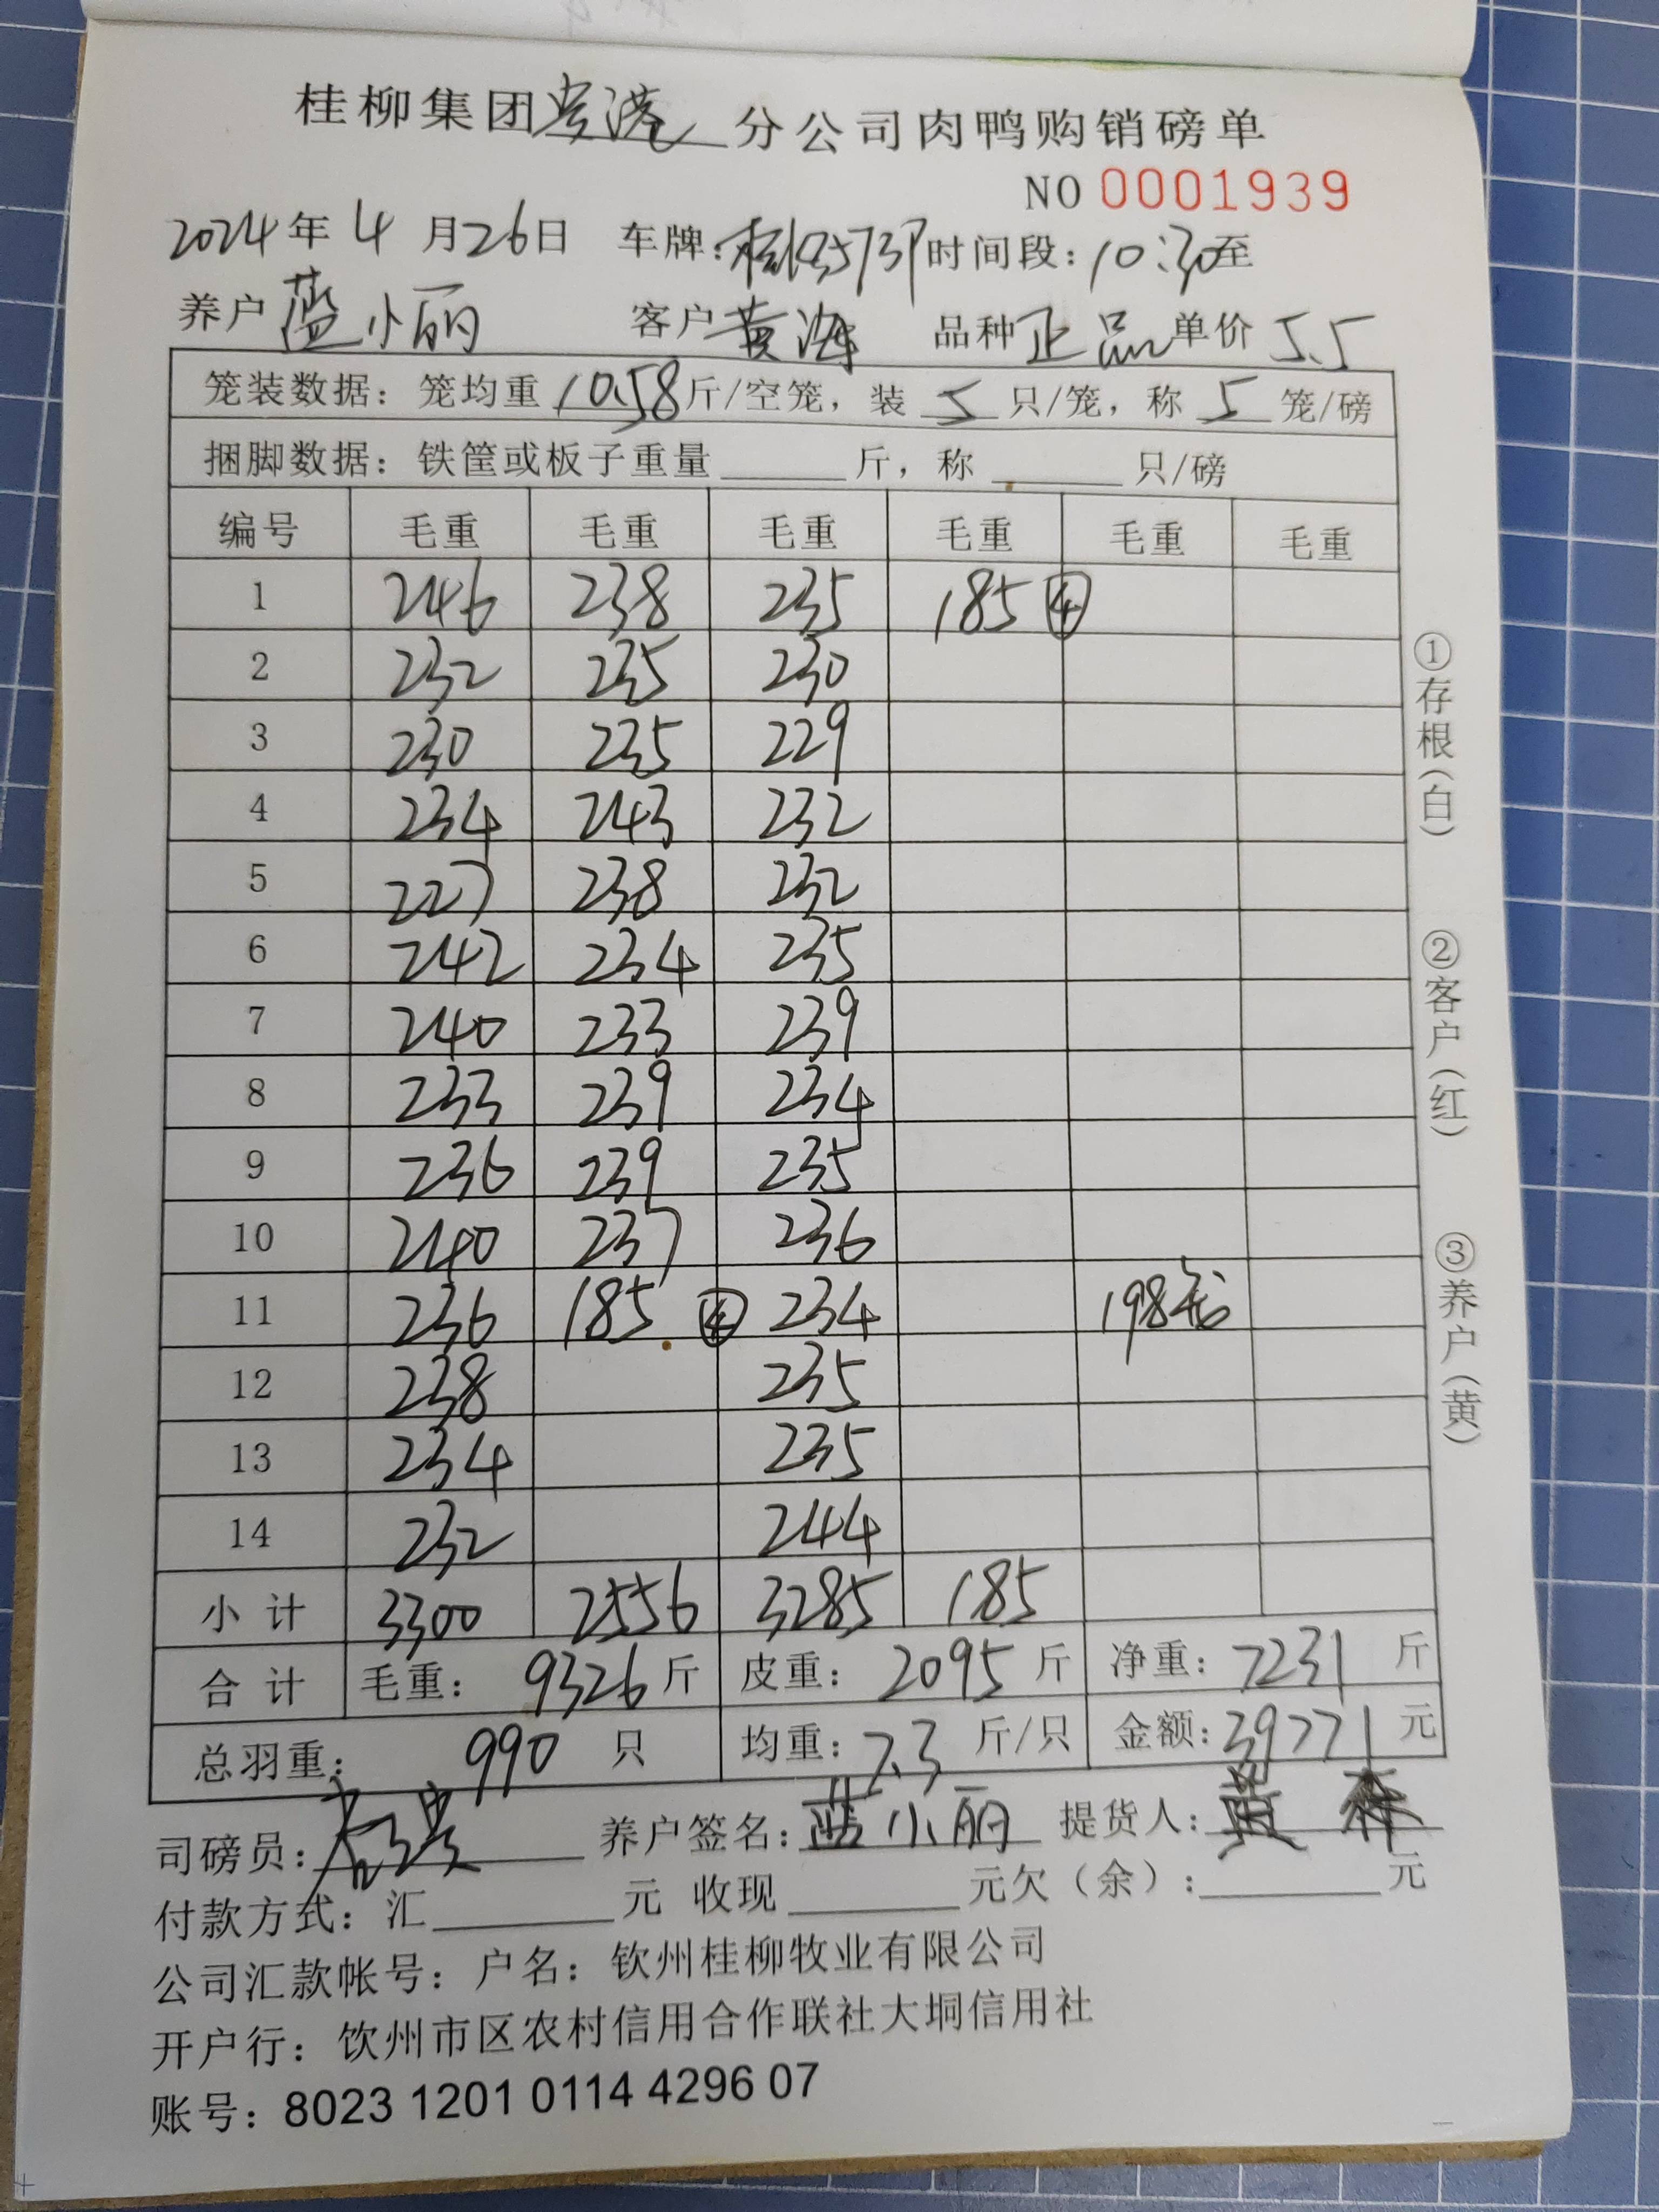 桂柳集团贵港分公司肉鸭购销磅单
NO 0001939
2024年4月26日 车牌: 时间段:10:30至
养户蓝小丽 客户黄海 品种正品 单价5.5
笼装数据:笼均重10.58斤/空笼,装5只/笼,称5笼/磅
捆脚数据:铁筐或板子重量______斤,称______只/磅
编号 毛重 毛重 毛重 毛重 毛重 毛重
1 246 238 235 185④
2 232 235 230
3 230 235 229
4 234 243 232
5 227 238 232
6 242 234 235
7 240 233 239
8 233 239 234
9 236 239 235
10 240 237 236
11 236 185④ 234 198
12 238 235
13 234 235
14 232 244
小计 3300 2556 3285 185
合计 毛重:9326斤 皮重:2095斤 净重:7231斤
总羽重:990只 均重:7.3斤/只 金额:39771元
司磅员: 养户签名:蓝小丽 提货人:黄
付款方式:汇______元 收现______元欠(余):______元
公司汇款帐号:户名:钦州桂柳牧业有限公司
开户行:钦州市区农村信用合作联社大垌信用社
账号:8023 1201 0114 4296 07
①存根(白)
②客户(红)
③养户(黄)